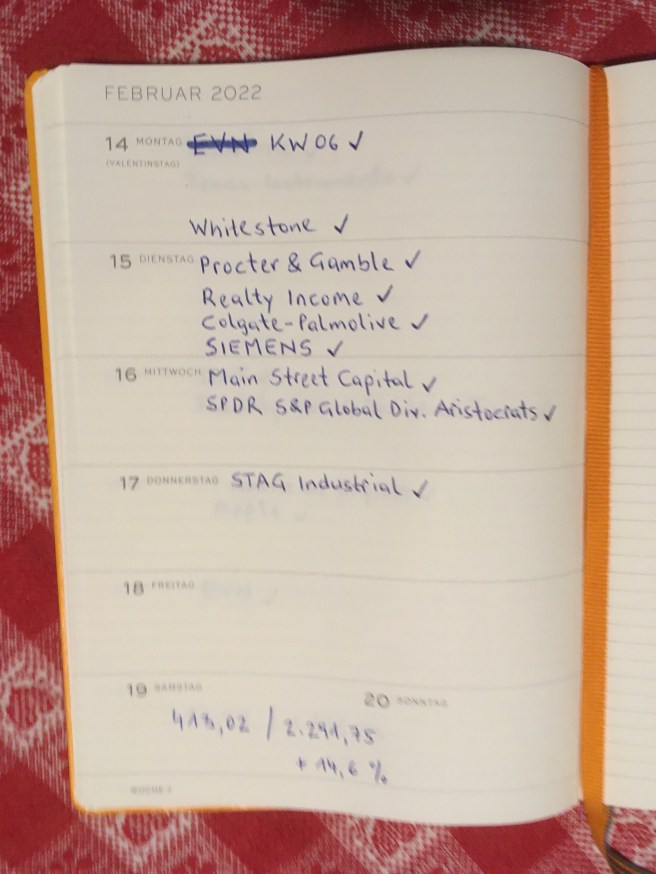 FEBRUAR 2022
14 MONTAG EVN KW 06 ✓
(VALENTINSTAG)
Whitestone ✓
15 DIENSTAG Procter & Gamble ✓
Realty Income ✓
Colgate-Palmolive ✓
SIEMENS ✓
16 MITTWOCH Main Street Capital ✓
SPDR S&P Global Div. Aristocrats ✓
17 DONNERSTAG STAG Industrial ✓
18 FREITAG
19 SAMSTAG 20 SONNTAG
413,02 / 2.291,75
+ 14,6 %
WOCHE 7